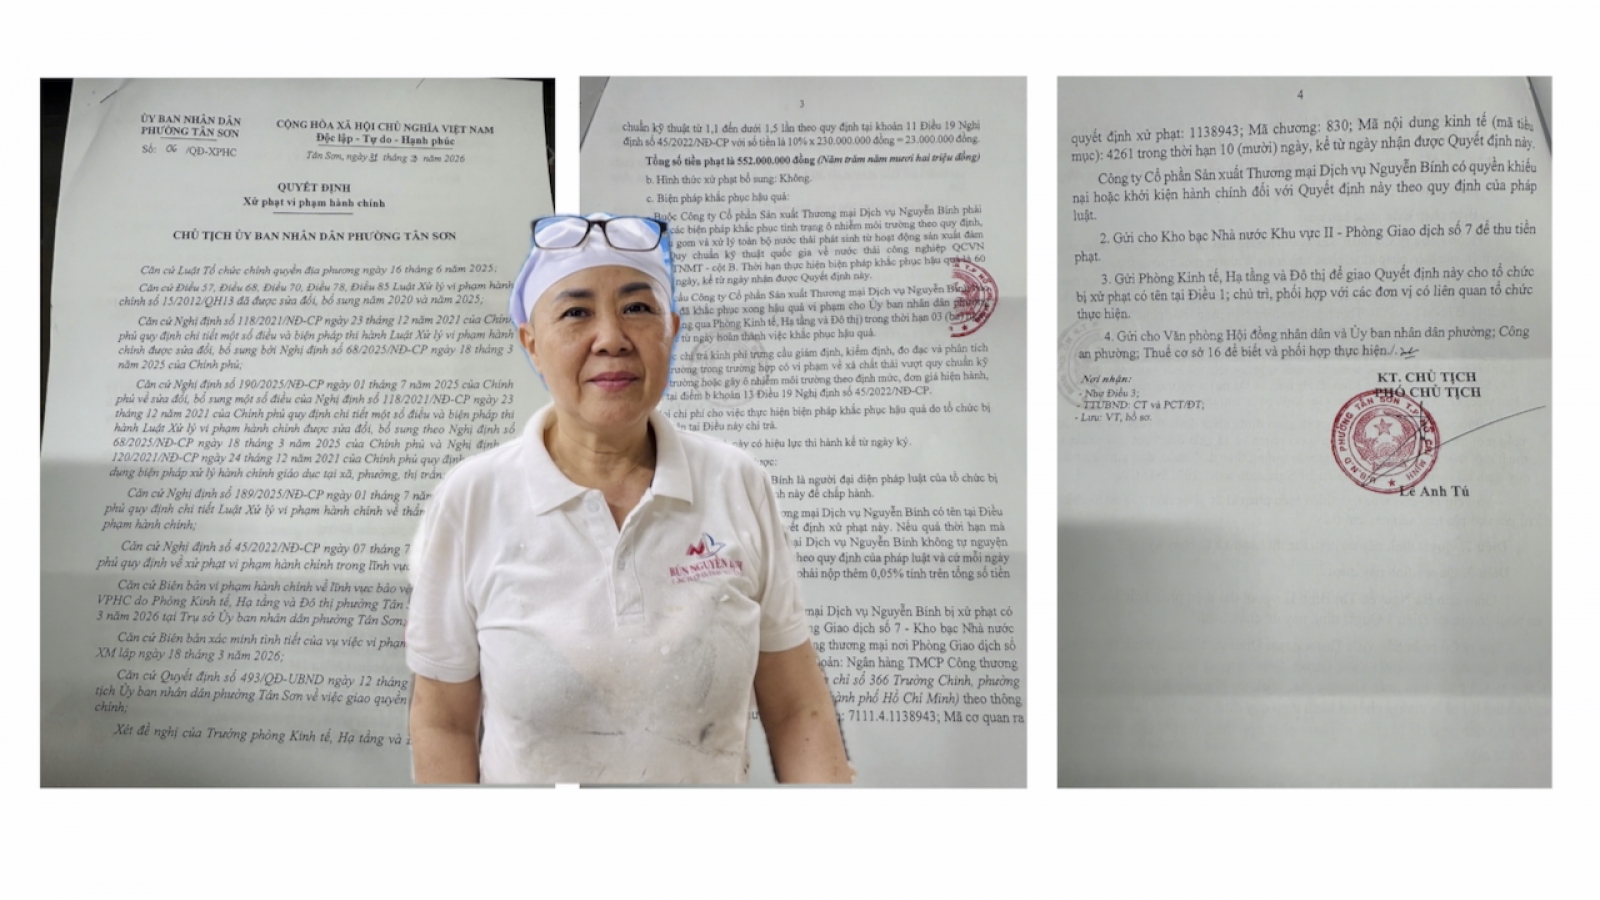 ỦY BAN NHÂN DÂN
PHƯỜNG TÂN SƠN
Số: 06 /QĐ-XPHC
CỘNG HÒA XÃ HỘI CHỦ NGHĨA VIỆT NAM
Độc lập - Tự do - Hạnh phúc
Tân Sơn, ngày 31 tháng 3 năm 2026
QUYẾT ĐỊNH
Xử phạt vi phạm hành chính
CHỦ TỊCH ỦY BAN NHÂN DÂN PHƯỜNG TÂN SƠN
Căn cứ Luật Tổ chức chính quyền địa phương ngày 16 tháng 6 năm 2025;
Căn cứ Điều 57, Điều 68, Điều 70, Điều 78, Điều 85 Luật Xử lý vi phạm hành
chính số 15/2012/QH13 đã được sửa đổi, bổ sung năm 2020 và năm 2025;
Căn cứ Nghị định số 118/2021/NĐ-CP ngày 23 tháng 12 năm 2021 của Chính
phủ quy định chi tiết một số điều và biện pháp thi hành Luật Xử lý vi phạm hành
chính được sửa đổi, bổ sung bởi Nghị định số 68/2025/NĐ-CP ngày 18 tháng 3
năm 2025 của Chính phủ;
Căn cứ Nghị định số 190/2025/NĐ-CP ngày 01 tháng 7 năm 2025 của Chính
phủ về sửa đổi, bổ sung một số điều của Nghị định số 118/2021/NĐ-CP ngày 23
tháng 12 năm 2021 của Chính phủ quy định chi tiết một số điều và biện pháp thi
hành Luật Xử lý vi phạm hành chính được sửa đổi, bổ sung theo Nghị định số
68/2025/NĐ-CP ngày 18 tháng 3 năm 2025 của Chính phủ và Nghị định
120/2021/NĐ-CP ngày 24 tháng 12 năm 2021 của Chính phủ quy định
dụng biện pháp xử lý hành chính giáo dục tại xã, phường, thị trấn;
Căn cứ Nghị định số 189/2025/NĐ-CP ngày 01 tháng 7 năm
phủ quy định chi tiết Luật Xử lý vi phạm hành chính về thẩm
phạm hành chính;
Căn cứ Nghị định số 45/2022/NĐ-CP ngày 07 tháng 7
phủ quy định về xử phạt vi phạm hành chính trong lĩnh vực
Căn cứ Biên bản vi phạm hành chính về lĩnh vực bảo vệ
VPHC do Phòng Kinh tế, Hạ tầng và Đô thị phường Tân
3 năm 2026 tại Trụ sở Ủy ban nhân dân phường Tân Sơn;
Căn cứ Biên bản xác minh tình tiết của vụ việc vi phạm
XM lập ngày 18 tháng 3 năm 2026;
Căn cứ Quyết định số 493/QĐ-UBND ngày 12 tháng
tịch Ủy ban nhân dân phường Tân Sơn về việc giao quyền
chính;
Xét đề nghị của Trưởng phòng Kinh tế, Hạ tầng và
3
chuẩn kỹ thuật từ 1,1 đến dưới 1,5 lần theo quy định tại khoản 11 Điều 19 Nghị
định số 45/2022/NĐ-CP với số tiền là 10% x 230.000.000 đồng = 23.000.000 đồng.
Tổng số tiền phạt là 552.000.000 đồng (Năm trăm năm mươi hai triệu đồng)
b. Hình thức xử phạt bổ sung: Không.
c. Biện pháp khắc phục hậu quả:
Buộc Công ty Cổ phần Sản xuất Thương mại Dịch vụ Nguyễn Bính phải
các biện pháp khắc phục tình trạng ô nhiễm môi trường theo quy định,
gom và xử lý toàn bộ nước thải phát sinh từ hoạt động sản xuất đảm
Quy chuẩn kỹ thuật quốc gia về nước thải công nghiệp QCVN
TNMT - cột B. Thời hạn thực hiện biện pháp khắc phục hậu quả là 60
ngày, kể từ ngày nhận được Quyết định này.
cầu Công ty Cổ phần Sản xuất Thương mại Dịch vụ Nguyễn Bính
đã khắc phục xong hậu quả vi phạm cho Ủy ban nhân dân phường
ng qua Phòng Kinh tế, Hạ tầng và Đô thị) trong thời hạn 03 (ba)
từ ngày hoàn thành việc khắc phục hậu quả.
chi trả kinh phí trưng cầu giám định, kiểm định, đo đạc và phân tích
trường trong trường hợp có vi phạm về xả chất thải vượt quy chuẩn kỹ
trường hoặc gây ô nhiễm môi trường theo định mức, đơn giá hiện hành,
tại điểm b khoản 13 Điều 19 Nghị định số 45/2022/NĐ-CP.
chi phí cho việc thực hiện biện pháp khắc phục hậu quả do tổ chức bị
tại Điều này chi trả.
này có hiệu lực thi hành kể từ ngày ký.
Bính là người đại diện pháp luật của tổ chức bị
này để chấp hành.
mại Dịch vụ Nguyễn Bính có tên tại Điều
định xử phạt này. Nếu quá thời hạn mà
Dịch vụ Nguyễn Bính không tự nguyện
theo quy định của pháp luật và cứ mỗi ngày
phải nộp thêm 0,05% tính trên tổng số tiền
mại Dịch vụ Nguyễn Bính bị xử phạt có
Giao dịch số 7 - Kho bạc Nhà nước
thương mại nơi Phòng Giao dịch số
khoản: Ngân hàng TMCP Công thương
chỉ số 366 Trường Chinh, phường
thành phố Hồ Chí Minh) theo thông
: 7111.4.1138943; Mã cơ quan ra
BÚN NGUYỄN BÍNH
4
quyết định xử phạt: 1138943; Mã chương: 830; Mã nội dung kinh tế (mã tiểu
mục): 4261 trong thời hạn 10 (mười) ngày, kể từ ngày nhận được Quyết định này.
Công ty Cổ phần Sản xuất Thương mại Dịch vụ Nguyễn Bính có quyền khiếu
nại hoặc khởi kiện hành chính đối với Quyết định này theo quy định của pháp
luật.
2. Gửi cho Kho bạc Nhà nước Khu vực II - Phòng Giao dịch số 7 để thu tiền
phạt.
3. Gửi Phòng Kinh tế, Hạ tầng và Đô thị để giao Quyết định này cho tổ chức
bị xử phạt có tên tại Điều 1; chủ trì, phối hợp với các đơn vị có liên quan tổ chức
thực hiện.
4. Gửi cho Văn phòng Hội đồng nhân dân và Ủy ban nhân dân phường; Công
an phường; Thuế cơ sở 16 để biết và phối hợp thực hiện./.
Nơi nhận:
- Như Điều 3;
- TTUBND: CT và PCT/ĐT;
- Lưu: VT, hồ sơ.
KT. CHỦ TỊCH
PHÓ CHỦ TỊCH
U.B.N.D PHƯỜNG TÂN SƠN T.P HỒ CHÍ MINH
Lê Anh Tú